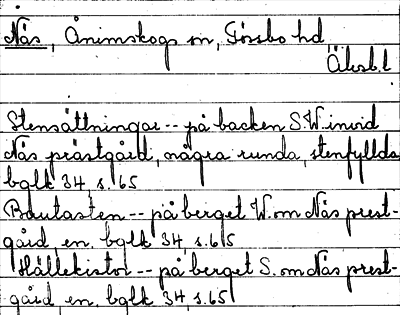 Näs, Ånimskogs sn, Tössbo hd
Älvsb.l
Stensättningar -- på backen S.W. invid
Näs prästgård, några runda, stenfyllda
bglk 34, s. 65
Bautasten -- på berget W. om Näs prest-
gård, en, bglk 34, s. 65
Hällekistor -- på berget S. om Näs prest-
gård, en, bglk 34, s. 65